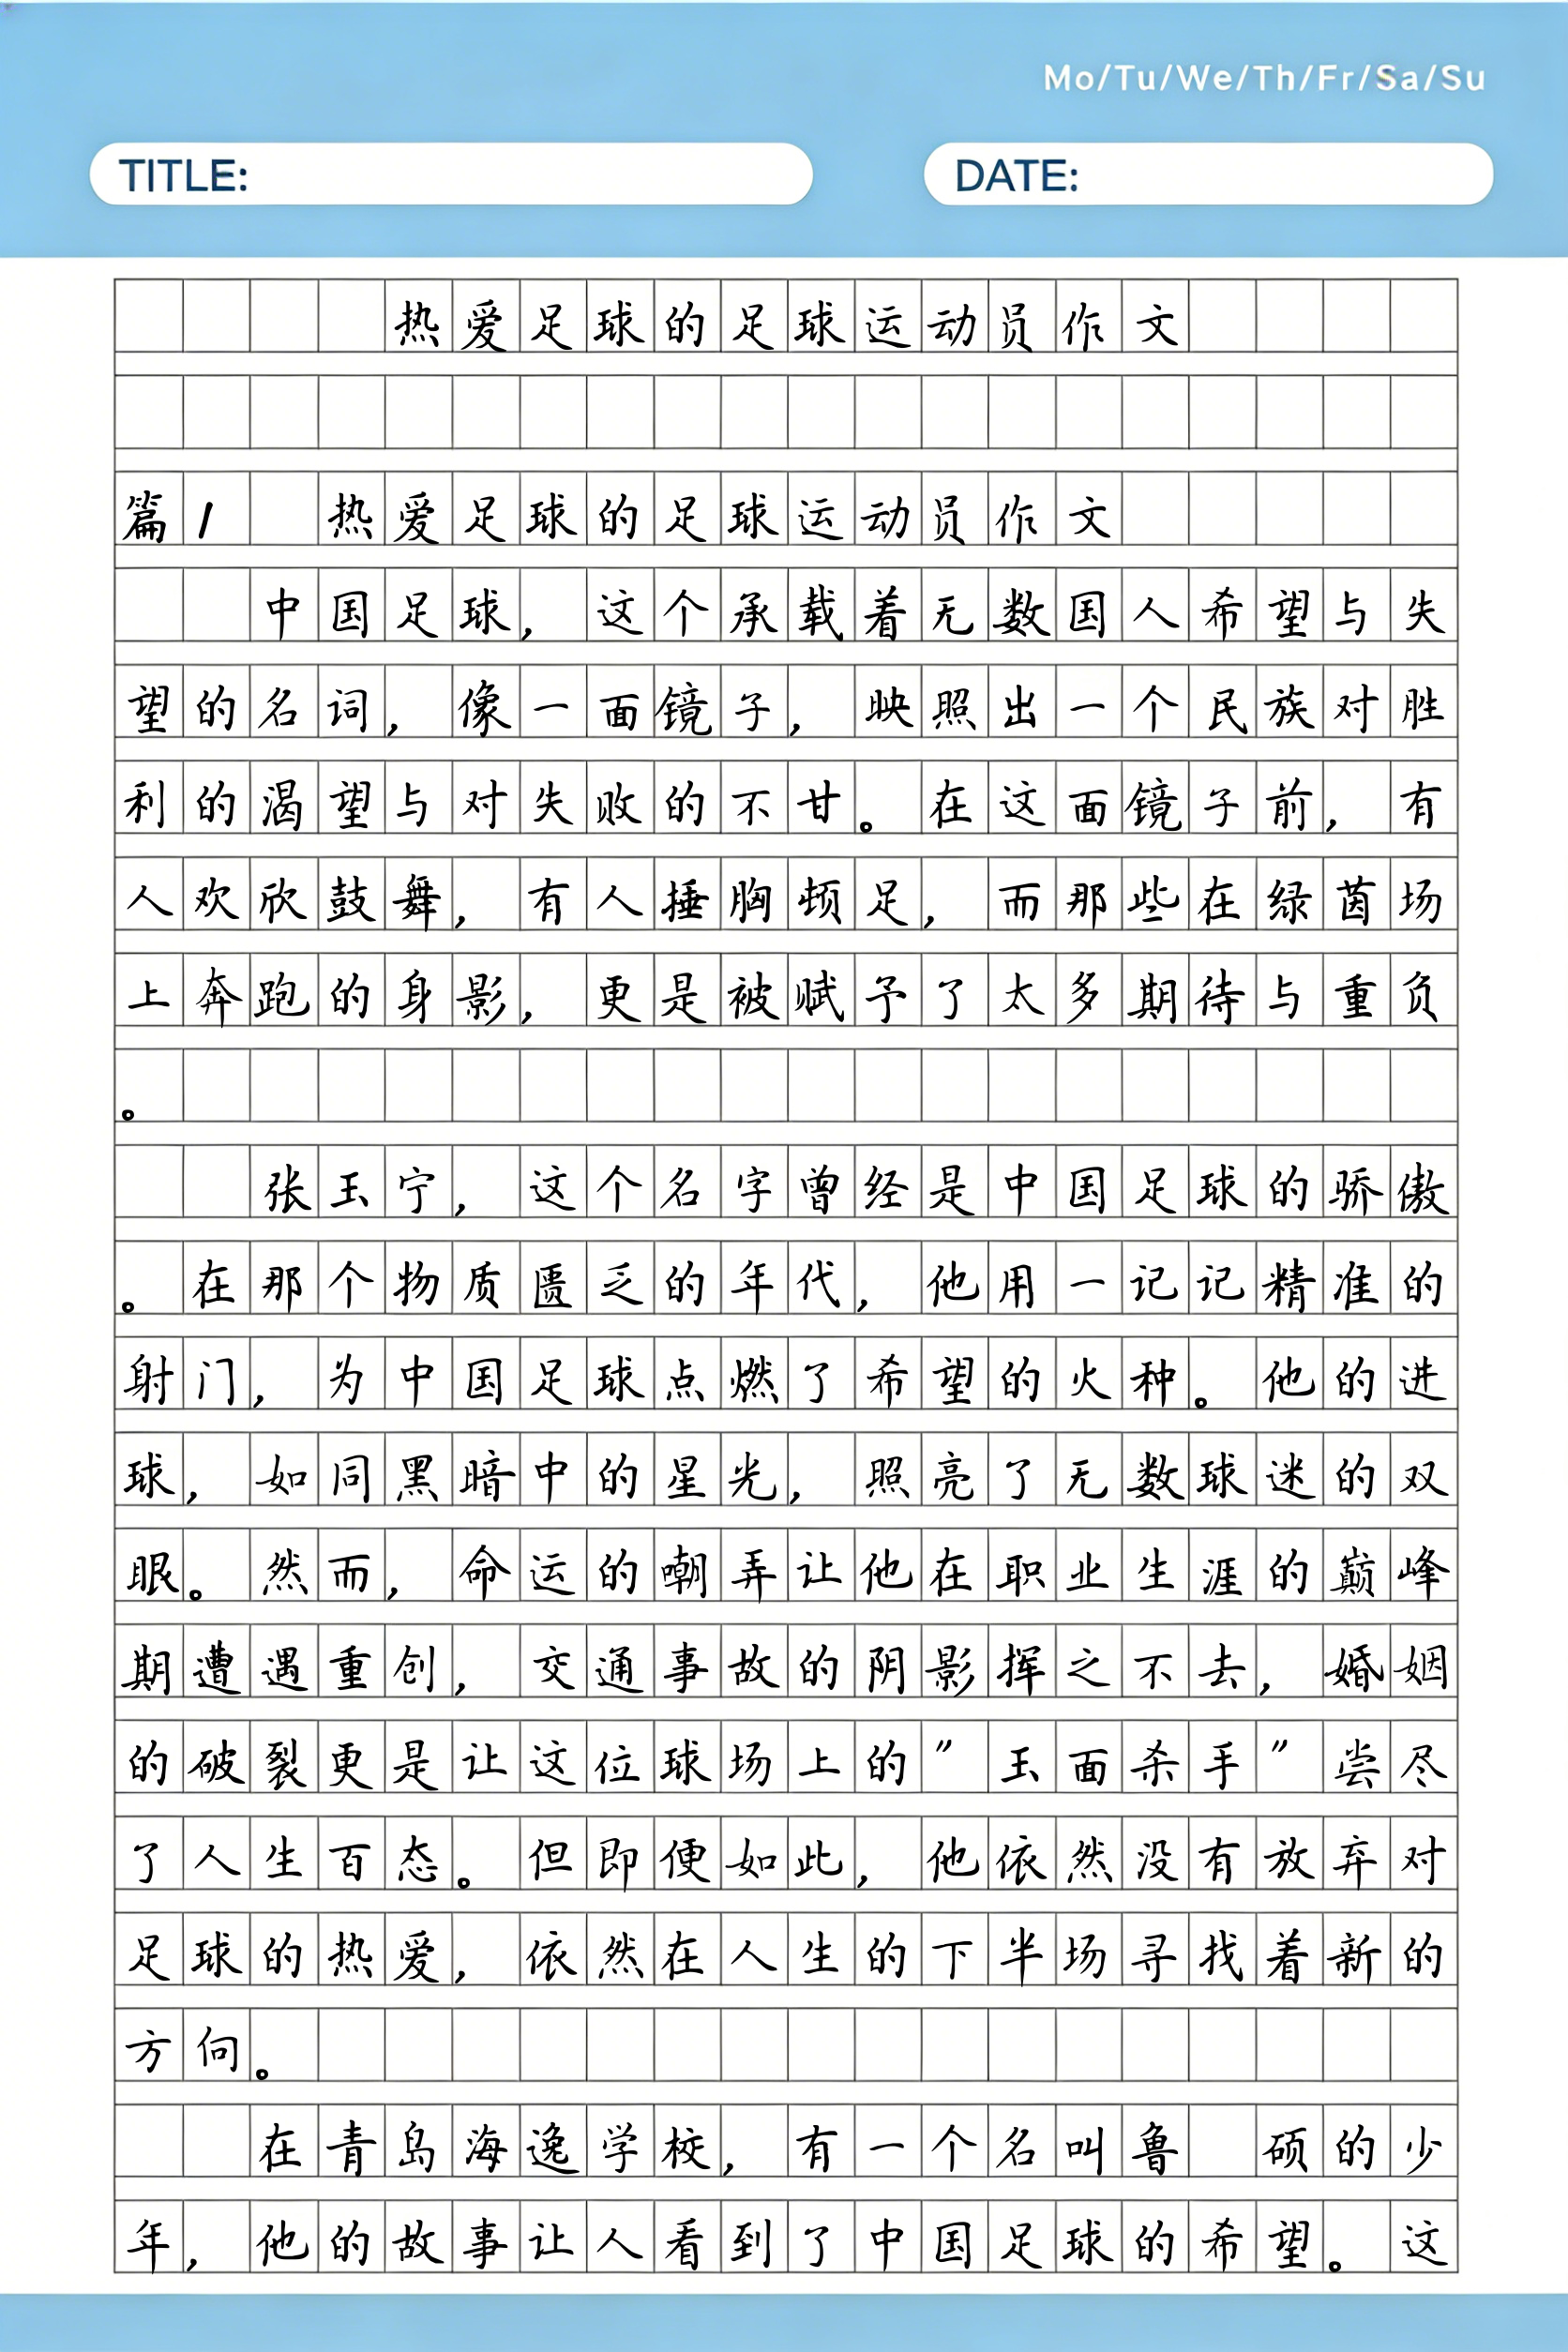 Mo/Tu/We/Th/Fr/Sa/Su
TITLE: DATE:
热爱足球的足球运动员作文
篇1 热爱足球的足球运动员作文
中国足球，这个承载着无数国人希望与失
望的名词，像一面镜子，映照出一个民族对胜
利的渴望与对失败的不甘。在这面镜子前，有
人欢欣鼓舞，有人捶胸顿足，而那些在绿茵场
上奔跑的身影，更是被赋予了太多期待与重负
。
张玉宁，这个名字曾经是中国足球的骄傲
。在那个物质匮乏的年代，他用一记记精准的
射门，为中国足球点燃了希望的火种。他的进
球，如同黑暗中的星光，照亮了无数球迷的双
眼。然而，命运的嘲弄让他在职业生涯的巅峰
期遭遇重创，交通事故的阴影挥之不去，婚姻
的破裂更是让这位球场上的"玉面杀手"尝尽
了人生百态。但即便如此，他依然没有放弃对
足球的热爱，依然在人生的下半场寻找着新的
方向。
在青岛海逸学校，有一个名叫鲁 硕的少
年，他的故事让人看到了中国足球的希望。这